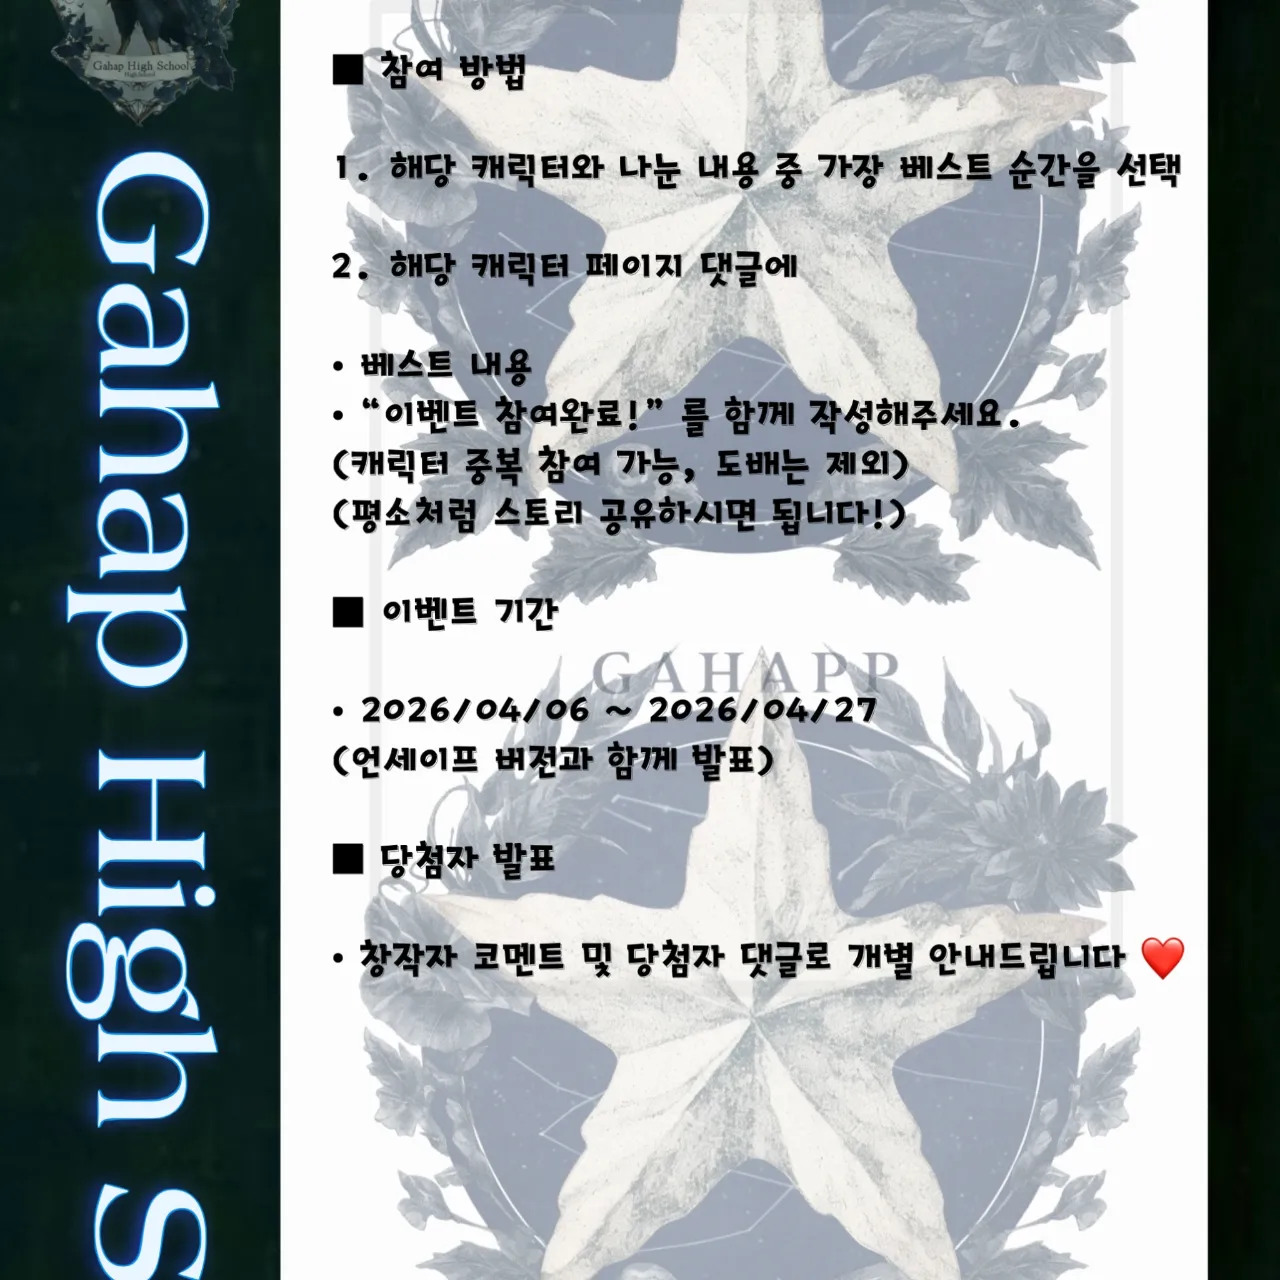 Gahap High School
High School
Gahap High S
■ 참여 방법
1. 해당 캐릭터와 나눈 내용 중 가장 베스트 순간을 선택
2. 해당 캐릭터 페이지 댓글에
• 베스트 내용
• “이벤트 참여완료!” 를 함께 작성해주세요.
(캐릭터 중복 참여 가능, 도배는 제외)
(평소처럼 스토리 공유하시면 됩니다!)
■ 이벤트 기간
GAHAPP
• 2026/04/06 ~ 2026/04/27
(언세이프 버전과 함께 발표)
■ 당첨자 발표
• 창작자 코멘트 및 당첨자 댓글로 개별 안내드립니다 ❤️